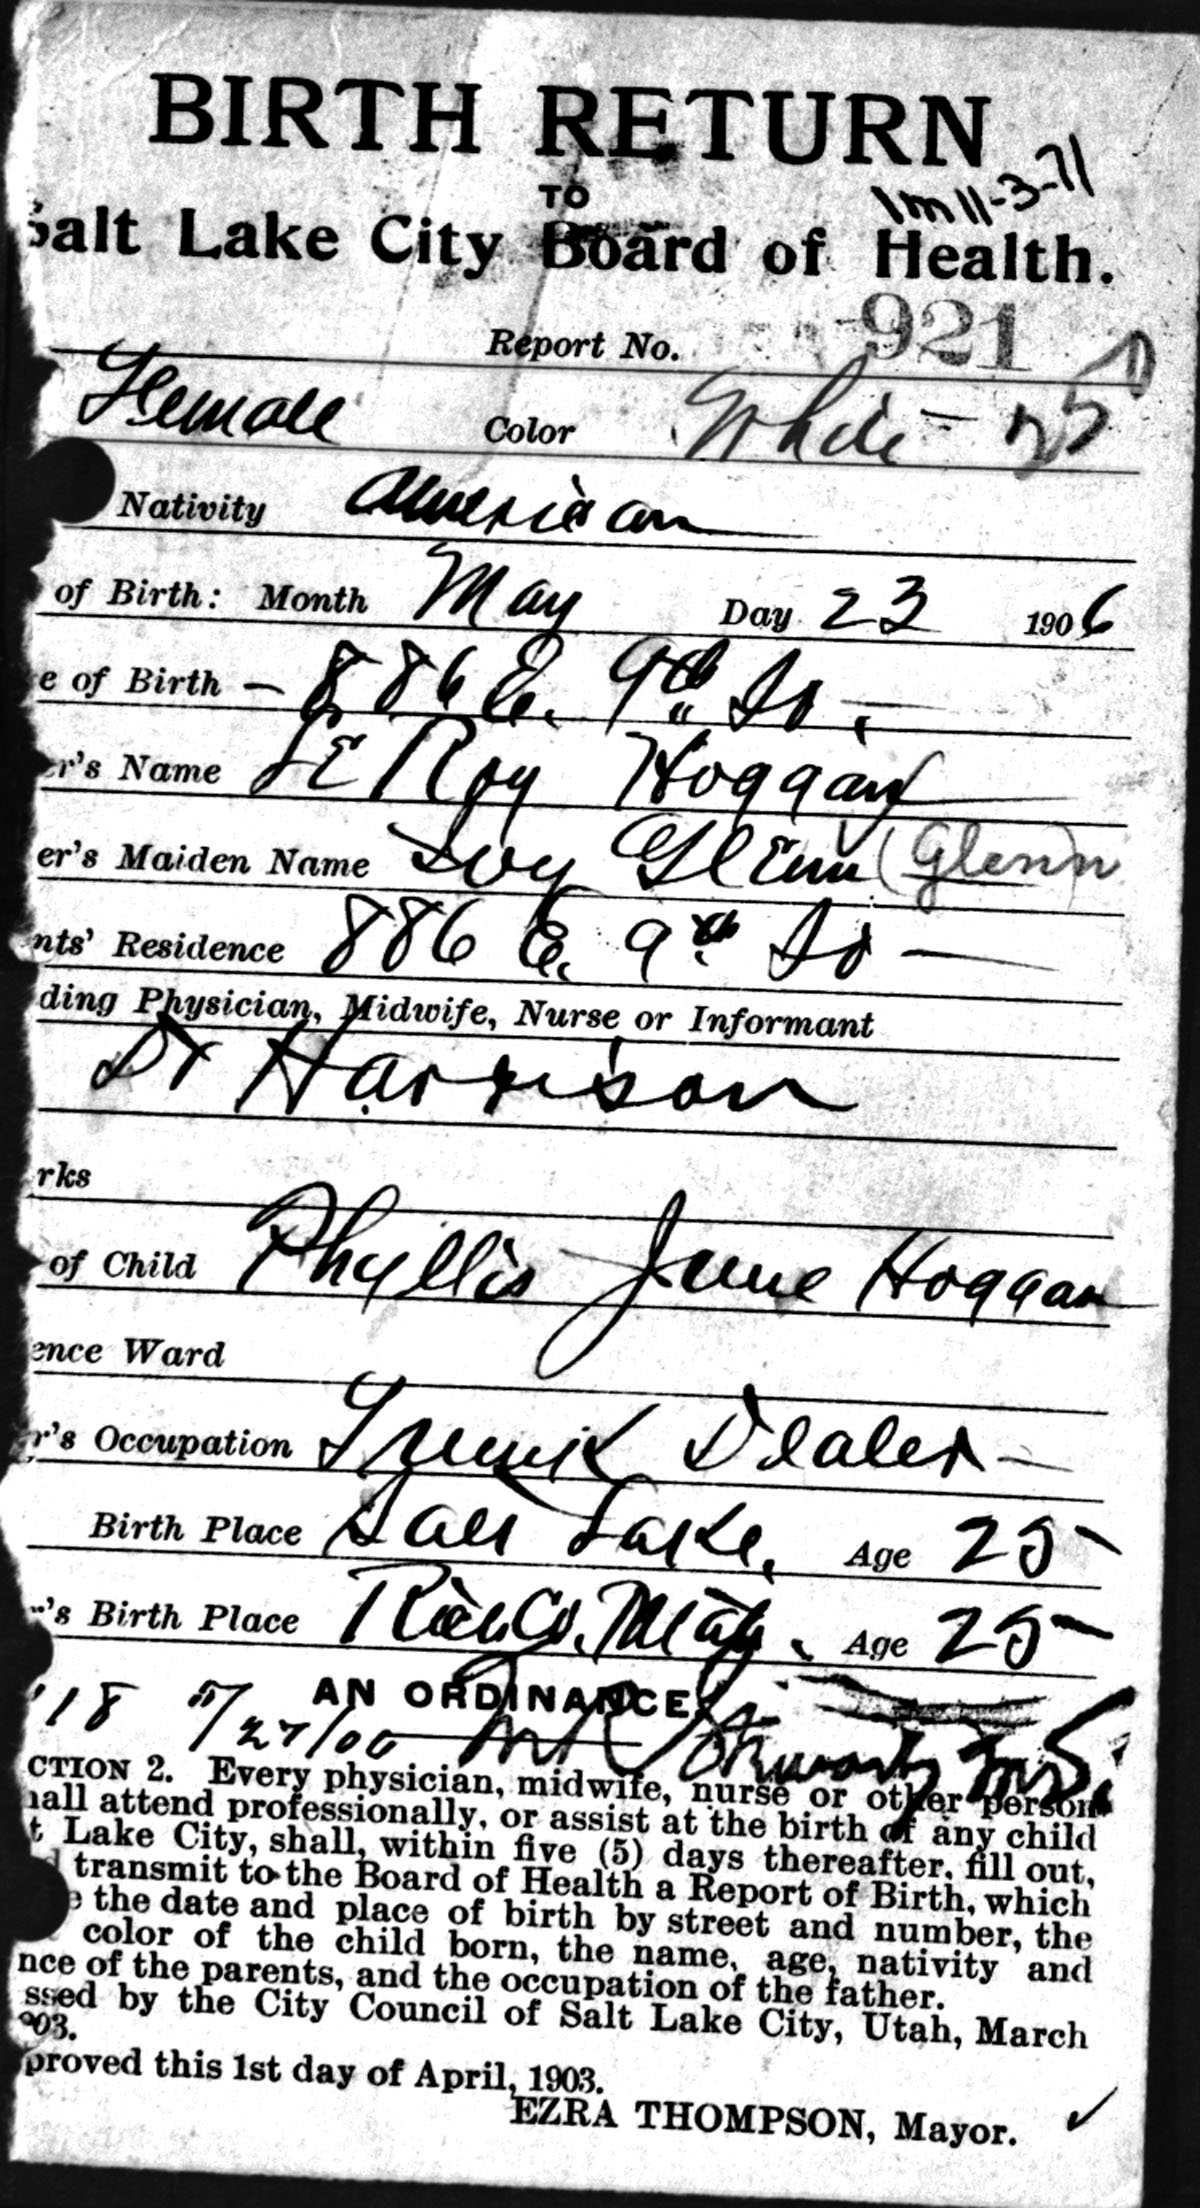 BIRTH RETURN
TO
1m 11-3-71
Salt Lake City Board of Health.
Report No. 921
Female Color White - 25
Nativity American
of Birth: Month May Day 23 1906
e of Birth - 886 E. 9th So.
er's Name LE Roy Hoggan
er's Maiden Name Ivy Glenn (Glenn)
nts' Residence 886 E. 9th So -
ding Physician, Midwife, Nurse or Informant
Dr Harrison
rks
of Child Phyllis June Hoggan
ence Ward
r's Occupation Dealer -
Birth Place Salt Lake, Age 25
's Birth Place Rich Co. Age 25
AN ORDINANCE
'18
CTION 2. Every physician, midwife, nurse or other person
hall attend professionally, or assist at the birth of any child
t Lake City, shall, within five (5) days thereafter, fill out,
d transmit to the Board of Health a Report of Birth, which
e the date and place of birth by street and number, the
color of the child born, the name, age, nativity and
nce of the parents, and the occupation of the father.
ssed by the City Council of Salt Lake City, Utah, March
903.
proved this 1st day of April, 1903.
EZRA THOMPSON, Mayor.